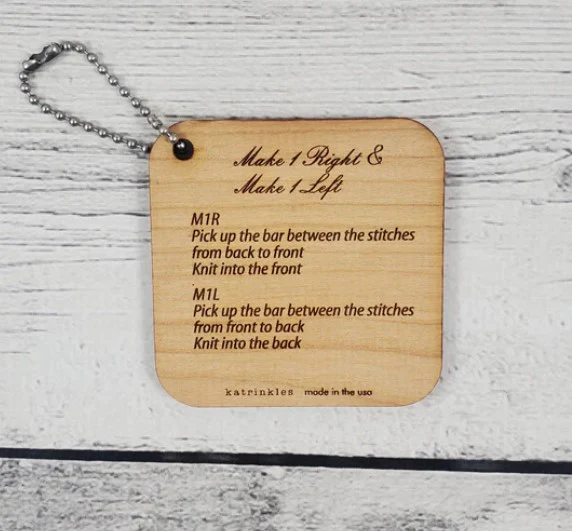 Make 1 Right &
Make 1 Left
M1R
Pick up the bar between the stitches
from back to front
Knit into the front
M1L
Pick up the bar between the stitches
from front to back
Knit into the back
katrinkles made in the usa